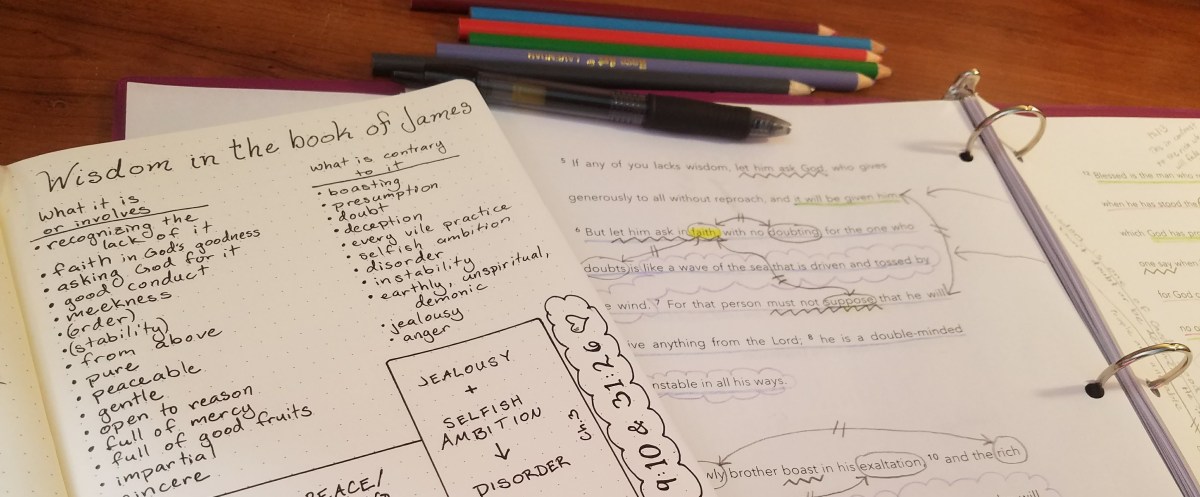 Wisdom in the book of James
what it is
or involves
• recognizing the
lack of it
• faith in God's goodness
• asking God for it
• good conduct
• meekness
• (order)
• (stability)
• from above
• pure
• peaceable
• gentle
• open to reason
• full of mercy
• full of good fruits
• impartial
sincere
what is contrary
to it
• boasting
• presumption
• doubt
• deception
• every vile practice
• selfish ambition
• disorder
• instability
• earthly, unspiritual,
demonic
• jealousy
• anger
JEALOUSY
+
SELFISH
AMBITION
↓
DISORDER
9:10 & 31:26
5 If any of you lacks wisdom, let him ask God, who gives
generously to all without reproach, and it will be given him.
6 But let him ask in faith, with no doubting, for the one who
doubts is like a wave of the sea that is driven and tossed by
e wind. 7 For that person must not suppose that he will
ive anything from the Lord; 8 he is a double-minded
nstable in all his ways.
wly brother boast in his exaltation, 10 and the rich
Blessed is the man who
when he has stood the
which God has
one say when
for God